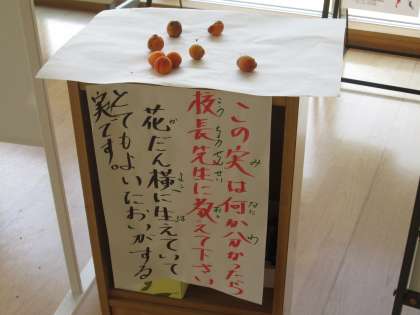 この実は何か分かったら
校長先生に教えて下さい
花だん様に生えていて
とてもよいにおいがする
実です。